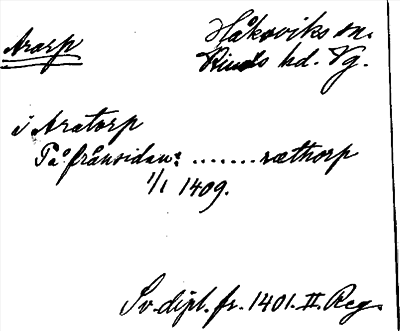 Ararp
Håkoviks sn.
Kinds hd. Vg.
i Aratorp
På frånsidan: ....... rathorp
1/1 1409.
Sv. dipl. fr. 1401. II. Reg.